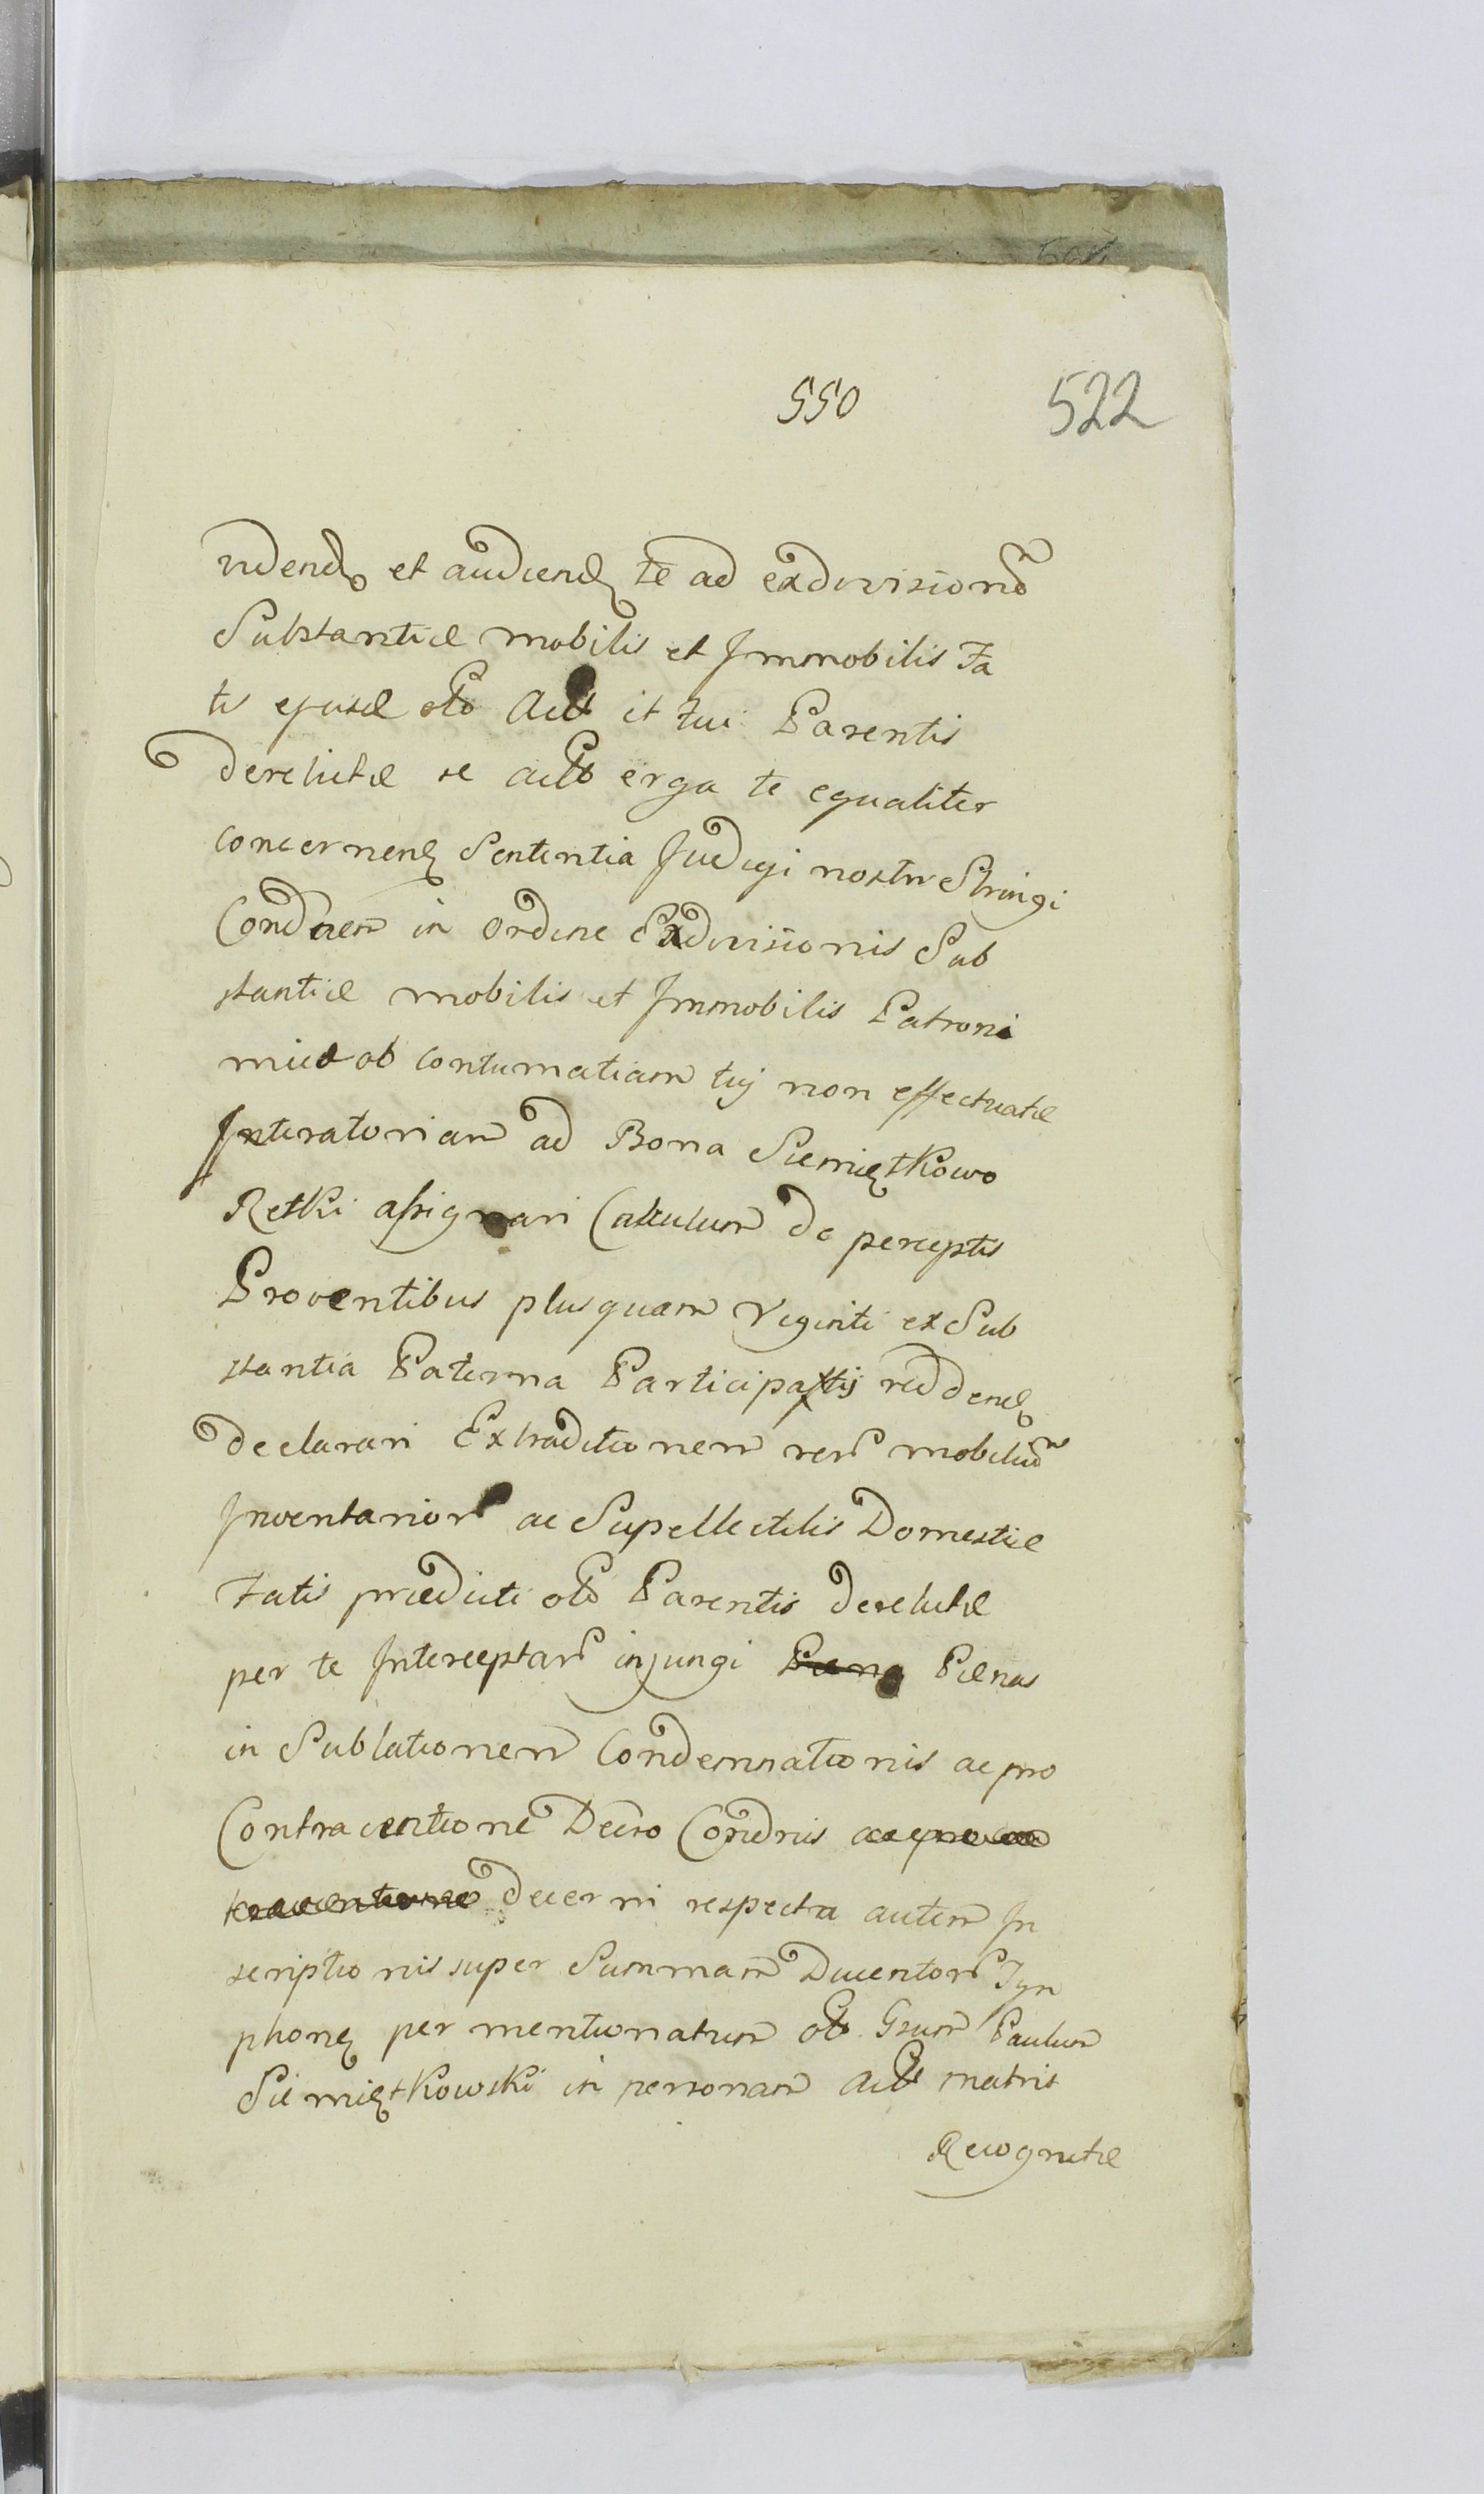 550 522
videndꝫ et audiendꝫ te ad exdivisionē
Substantiæ mobilis et Immobilis Fa
ti ejusd olo Act et tui Parentis
derelictæ se acto erga te equaliter
concernenꝫ Sententia Judcyi nostri Stringi
Condnem in ordine Exdivisionis Sub
stantiæ mobilis et Immobilis Patroni
micæ ob contumatiam tuj non effectuatæ
Interatoriam ad Bona Siemiętkowo
Retki assignari Calculum de perceptis
Proventibus plusquam Viginti ex Sub
stantia Paterna Participatis reddendꝫ
declarari Extraditionem rerū mobiliū
Inventarior ac Supellectilis Domesticæ
Fatis prædicti olo Parentis derelictæ
per te Interceptarū injungi Pænas
in Sublationem Condemnationis ac pro
Contraventione Decro Condnis
decerni respectu autem In
scriptionis super Summam Ducentorū Tyn
phonꝫ per mentionatum olo Gsum Paulum
Siemiętkowski in personam Act matris
Recognitæ